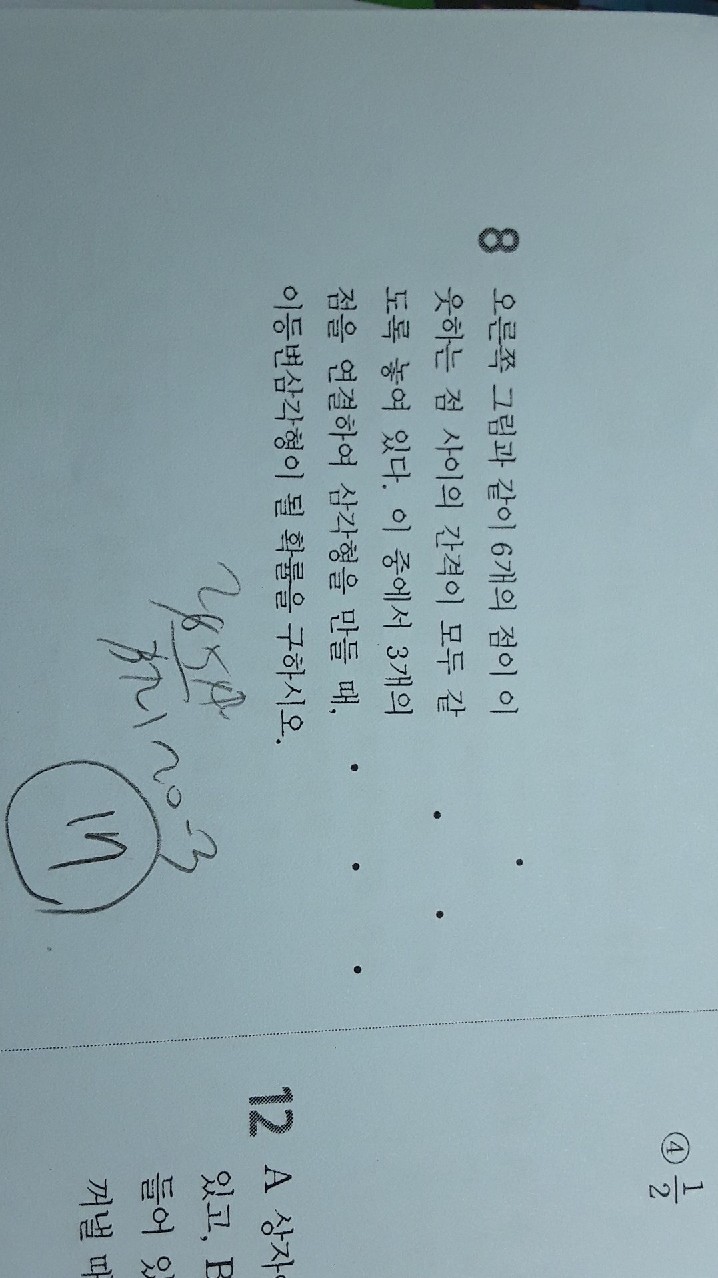 8 오른쪽 그림과 같이 6개의 점이 이
웃하는 점 사이의 간격이 모두 같
도록 놓여 있다. 이 중에서 3개의
점을 연결하여 삼각형을 만들 때,
이등변삼각형이 될 확률을 구하시오.
20-3
17
④ 1/2
12 A 상자
있고, B
들어 있
꺼낼 때